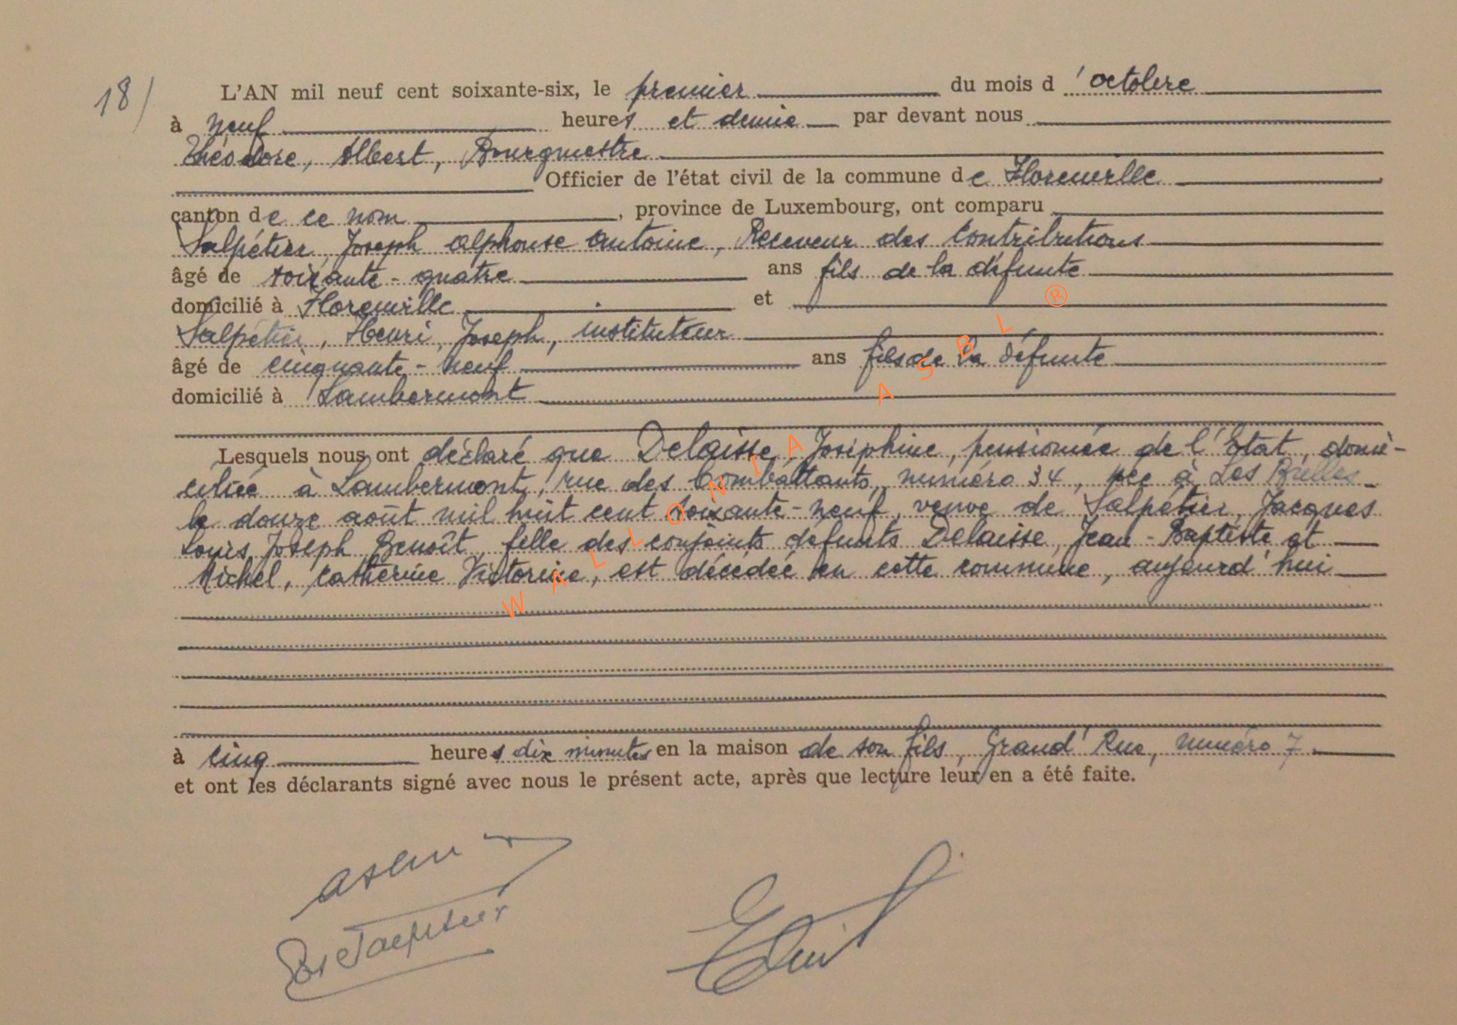 18/
L'AN mil neuf cent soixante-six, le premier du mois d'octobre
à neuf heures et demie par devant nous
Théodore, Albert, Bourgmestre
Officier de l'état civil de la commune de Florenville
canton de ce nom, province de Luxembourg, ont comparu
Salpétier, Joseph Alphonse Antoine, Receveur des Contributions
âgé de soixante-quatre ans fils de la défunte
domicilié à Florenville et
Salpétier, Henri, Joseph, instituteur
âgé de cinquante-neuf ans fils de la défunte
domicilié à Lambermont
Lesquels nous ont déclaré que Delaisse, Joséphine, pensionnée de l'Etat, domi-
ciliée à Lambermont, rue des Combattants, numéro 34, née à Les Bulles
le douze août mil huit cent soixante-neuf, veuve de Salpétier, Jacques
Louis, Joseph Benoît, fille des conjoints défunts Delaisse, Jean-Baptiste et
Michel, Catherine Victorine, est décédée en cette commune, aujourd'hui
à cinq heures dix minutes en la maison de son fils, Grand'Rue, numéro 7
et ont les déclarants signé avec nous le présent acte, après que lecture leur en a été faite.
WALLONIA ASBL ®